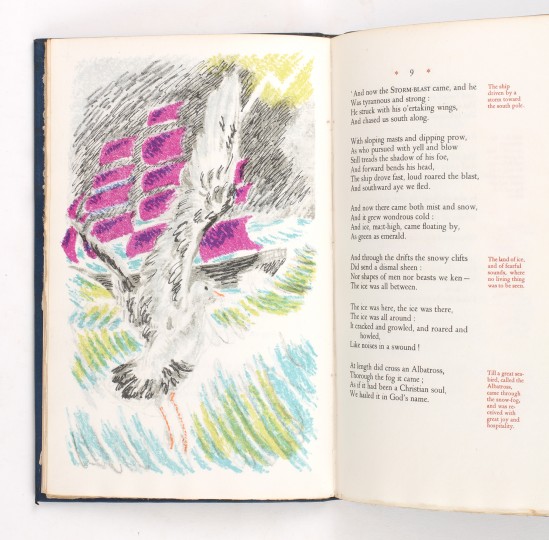 * 9 *
'And now the STORM-BLAST came, and he
Was tyrannous and strong :
He struck with his o'ertaking wings,
And chased us south along.
The ship
driven by a
storm toward
the south pole.
With sloping masts and dipping prow,
As who pursued with yell and blow
Still treads the shadow of his foe,
And forward bends his head,
The ship drove fast, loud roared the blast,
And southward aye we fled.
And now there came both mist and snow,
And it grew wondrous cold :
And ice, mast-high, came floating by,
As green as emerald.
And through the drifts the snowy clifts
Did send a dismal sheen :
Nor shapes of men nor beasts we ken—
The ice was all between.
The land of ice,
and of fearful
sounds, where
no living thing
was to be seen.
The ice was here, the ice was there,
The ice was all around :
It cracked and growled, and roared and
howled,
Like noises in a swound !
At length did cross an Albatross,
Thorough the fog it came ;
As if it had been a Christian soul,
We hailed it in God's name.
Till a great sea-
bird, called the
Albatross,
came through
the snow-fog,
and was re-
ceived with
great joy and
hospitality.